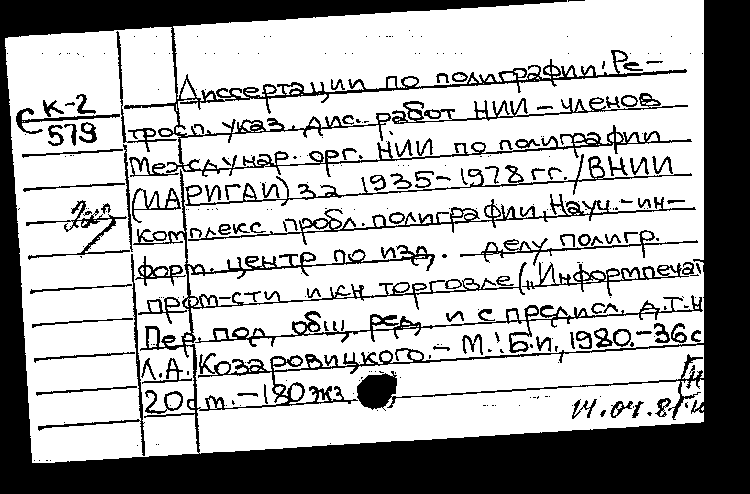 Диссертации по полиграфии: Ре-
С К-2
579
тросп. указ. дис. работ НИИ - членов
Междунар. орг. НИИ по полиграфии
(ИАРИГАИ) за 1935-1978 гг. / ВНИИ
комплекс. пробл. полиграфии, Науч.-ин-
форм. центр по изд. делу, полигр.
пром-сти и кн торговле („Информпечат
Пер. под общ. ред. и с предисл. д.т.н
Л.А. Козаровицкого. - М.: Б.и., 1980. - 36 с
20 см. - 180 экз.
14.04.81